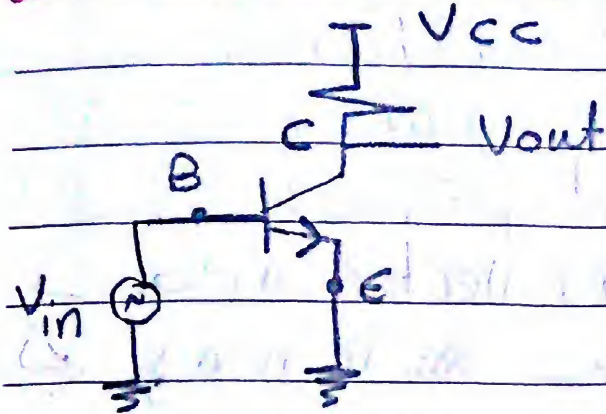 Vcc
C
Vout
B
Vin
E